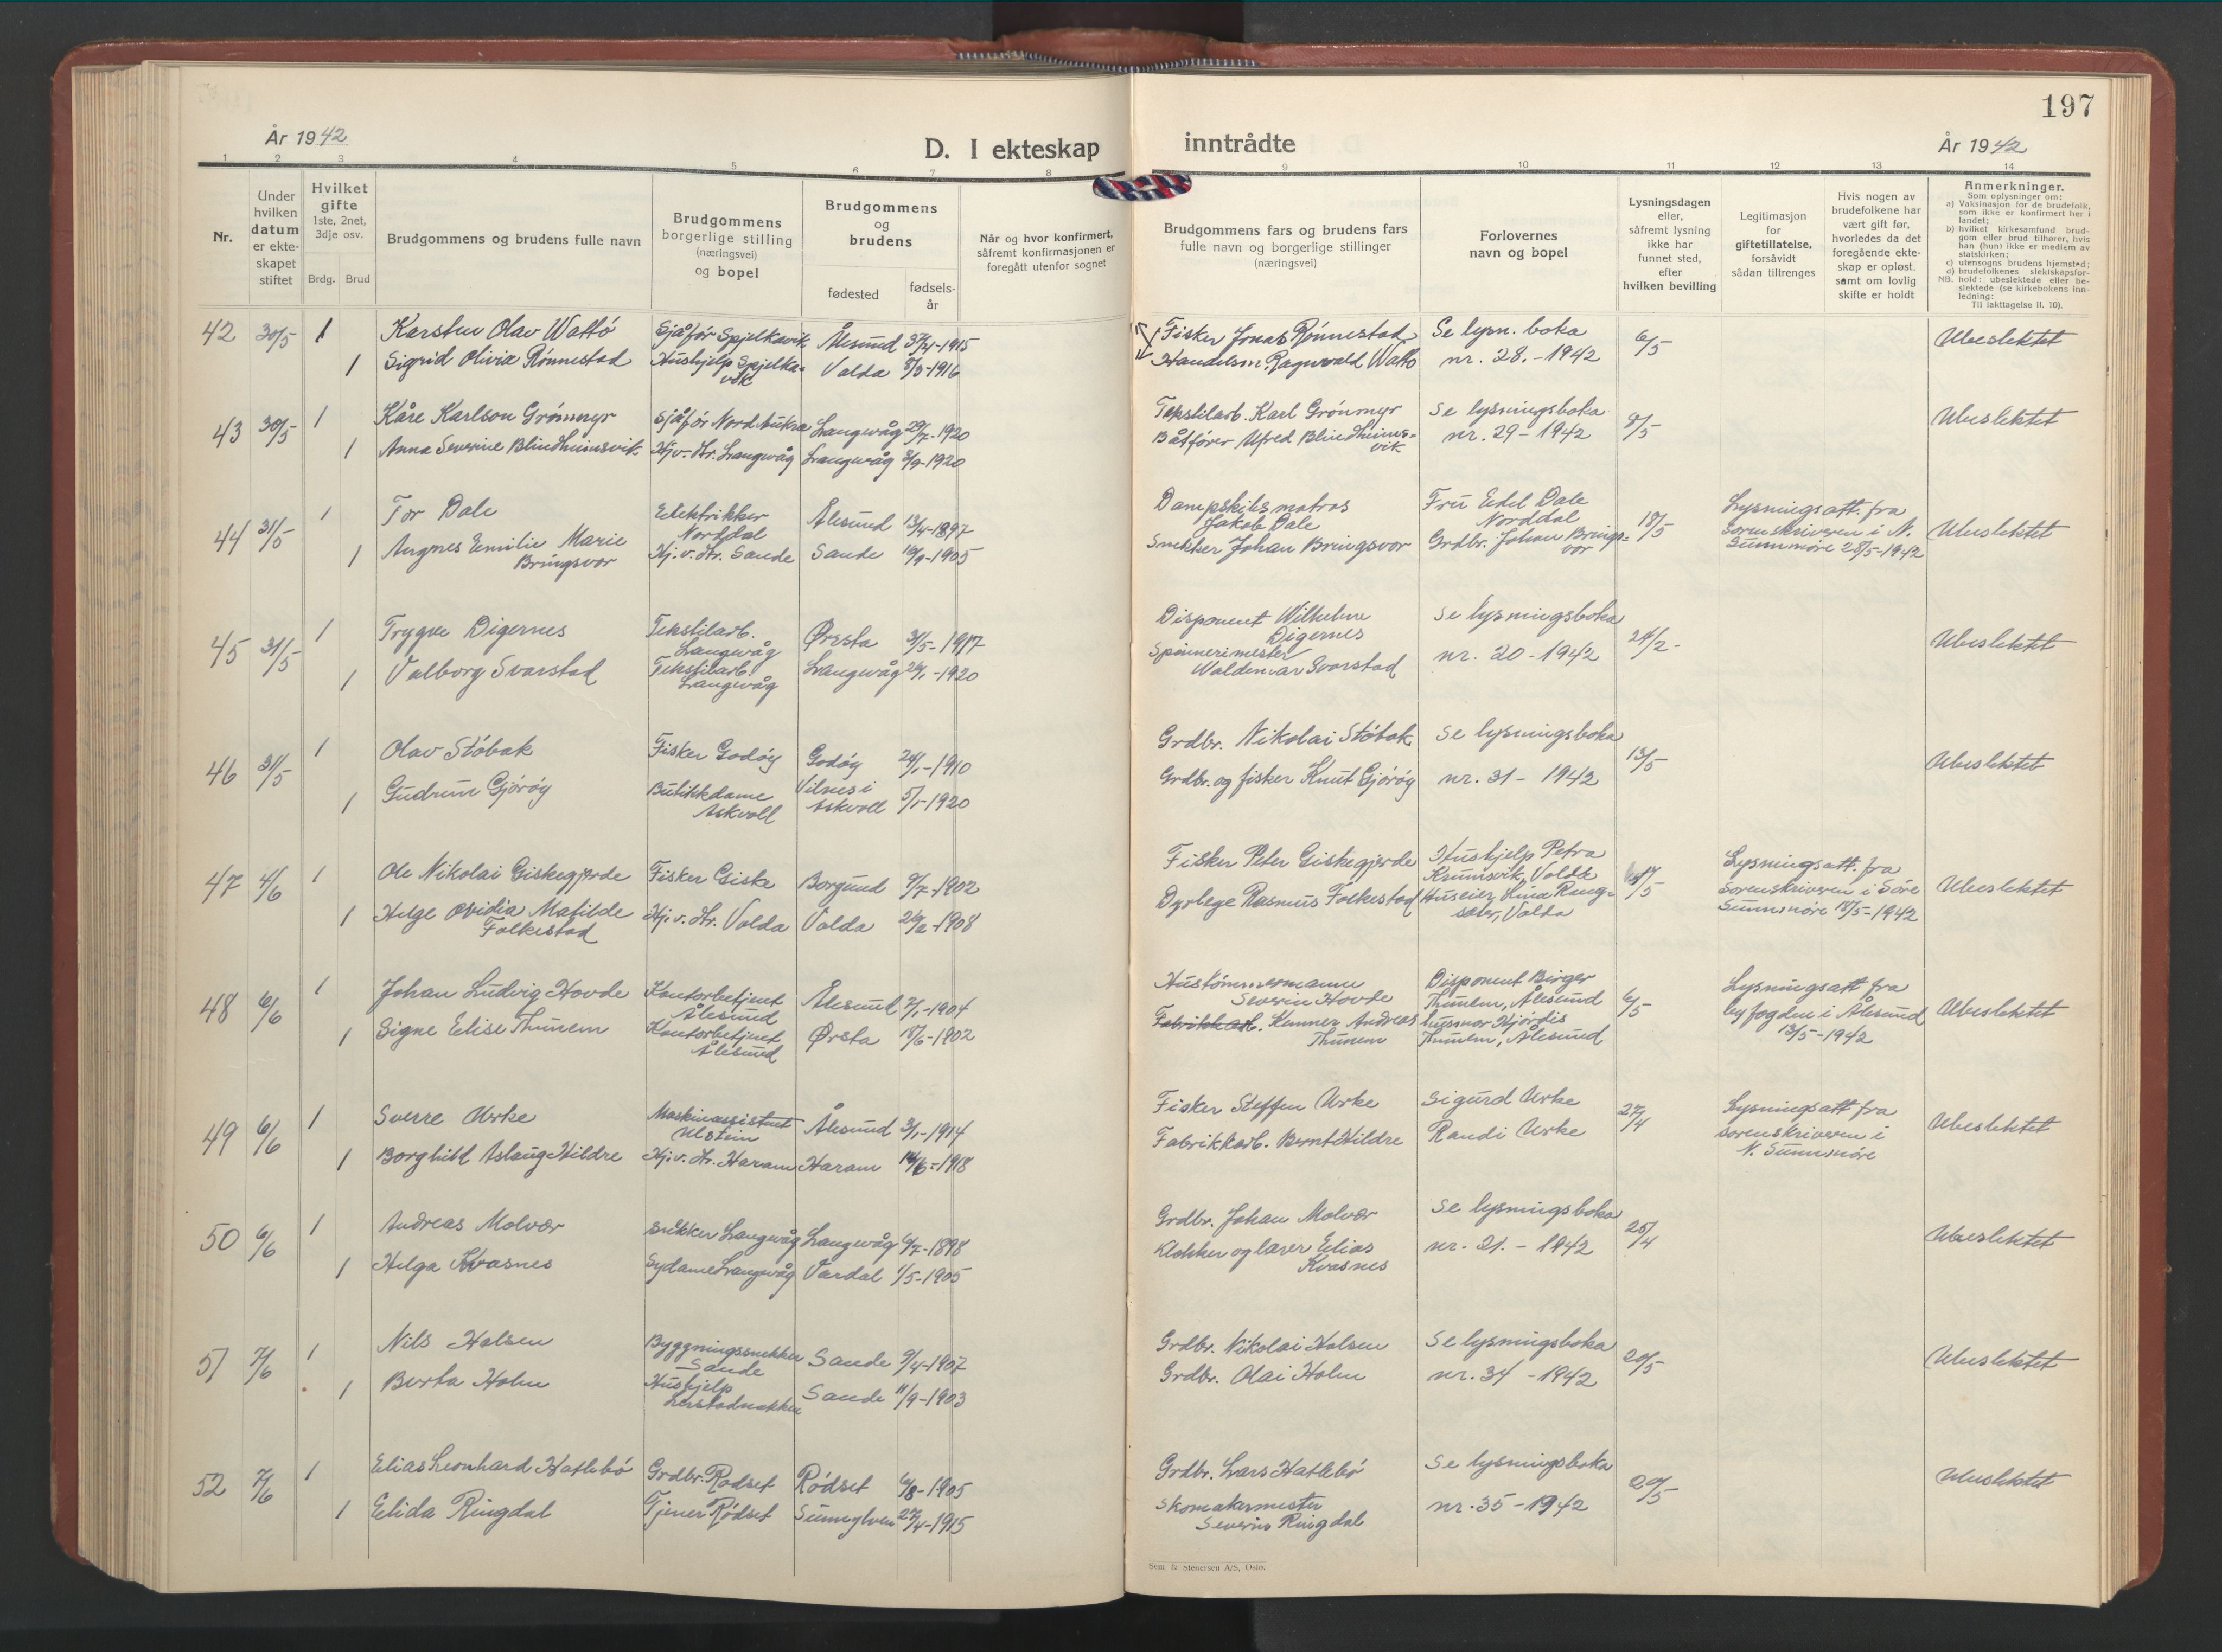 197
År 1942
D. I ekteskap
inntrådte
År 1942
1 2 3 4 5 6 7 8 9 10 11 12 13 14
Nr.
Under hvilken datum er ekteskapet stiftet
Hvilket gifte
1ste, 2net, 3dje osv.
Brdg. Brud
Brudgommens og brudens fulle navn
Brudgommens borgerlige stilling (næringsvei) og bopel
Brudgommens og brudens
fødested
fødselsår
Når og hvor konfirmert, såfremt konfirmasjonen er foregått utenfor sognet
Brudgommens fars og brudens fars fulle navn og borgerlige stillinger (næringsvei)
Forlovernes navn og bopel
Lysningsdagen eller, såfremt lysning ikke har funnet sted, efter hvilken bevilling
Legitimasjon for giftetillatelse, forsåvidt sådan tiltrenges
Hvis nogen av brudefolkene har vært gift før, hvorledes da det foregående ekteskap er opløst, samt om lovlig skifte er holdt
Anmerkninger.
Som oplysninger om:
a) Vaksinasjon for de brudefolk, som ikke er konfirmert her i landet;
b) hvilket kirkesamfund brudgom eller brud tilhører, hvis han (hun) ikke er medlem av statskirken;
c) utensogns brudens hjemsted;
d) brudefolkenes slektskapsforhold: ubeslektede eller beslektede (se kirkebokens innledning:
NB.
Til iakttagelse II. 10).
42 30/5 1 Karsten Olav Wattø Sjåfør Spjelkavik Ålesund 1915 Fisker Jonas Rønnestad Se lysn. boka 6/5 Ubeslektet
1 Sigrid Olivia Rønnestad Hushjelp Spjelkavik Volda 1916 Handelsm. Ragnvald Wattø nr. 28. - 1942
43 30/5 1 Kåre Karlson Grønmyr Sjåfør Nord Aukra Langevåg 29/7-1920 Tekstilarb. Karl Grønmyr Se lysningsboka 8/5 Ubeslektet
1 Anna Severine Blindheimsvik Hj. v. Fr. Langevåg Langevåg 3/9-1920 Båtfører Alfred Blindheimsvik nr. 29 - 1942
44 31/5 1 Tor Dale Elektrikker Norddal Ålesund 13/4-1897 Dampskibsmatros Jakob Dale Fru Edel Dale Norddal 18/5 Lysningsatt. fra Sorenskriveren i N. Sunnmøre 28/5-1942 Ubeslektet
1 Angnes Emilie Marie Bringsvor Hj. v. Fr. Sande Sande 10/9-1905 Snekker Johan Bringsvor Grdbr. Johan Bringsvor
45 31/5 1 Trygve Digernes Tekstilarb. Langevåg Ørsta 31/5-1917 Disponent Wilhelm Digernes Se lysningsboka 24/2- Ubeslektet
1 Valborg Svarstad Tekstilarb. Langevåg Langevåg 26/1-1920 Spinnerimester Waldemar Svarstad nr. 20 - 1942
46 31/5 1 Olav Støbak Fisker Godøy Godøy 24/1-1910 Grdbr. Nikolai Støbak Se lysningsboka 13/5 Ubeslektet
1 Gudrun Gjørøy Butikkdame Askvoll Vilnes i Askvoll 5/1-1920 Grdbr. og fisker Knut Gjørøy nr. 31 - 1942
47 4/6 1 Ole Nikolai Giskegjerde Fisker Giske Borgund 9/7-1902 Fisker Peter Giskegjerde Hushjelp Petra Krumsvik, Volda Lysningsatt. fra Sorenskriveren i Søre Sunnmøre 18/5-1942 Ubeslektet
1 Helge Ovidia Matilde Folkestad Hj. v. Fr. Volda Volda 1908 Dyrlege Rasmus Folkestad Huseier Lina Rangsæter, Volda
48 6/6 1 Johan Ludvig Hovde Kontorbetjent Ålesund Ålesund 7/1-1904 Hustømmermann Severin Hovde Disponent Birger Thunem, Ålesund 6/5 Lysningsatt fra byfogden i Ålesund 13/5-1942 Ubeslektet
1 Signe Elise Thunem Kontorbetjent Ålesund Ørsta 18/6-1902 Fabrikkarb. Kunner Andreas Thunem husmor Hjørdis Thunem, Ålesund
49 6/6 1 Sverre Urke Maskinassistent Ulstein Ålesund 3/1-1914 Fisker Steffen Urke Sigurd Urke 27/4 Lysningsatt fra sorenskriveren i N. Sunnmøre Ubeslektet
1 Borghild Aslaug Hildre Hj. v. Fr. Haram Haram 14/6-1918 Fabrikkarb. Bernt Hildre Randi Urke
50 6/6 1 Andreas Molvær Snikker Langevåg Langevåg 6/7-1898 Grdbr. Johan Molvær Se lysningsboka 25/4 Ubeslektet
1 Helga Kvasnes Sydame Langevåg Vardal 1/5-1905 Klokker og lærer Elias Kvasnes nr. 21. - 1942
51 7/6 1 Nils Halsen Byggningssnekker Sande Sande 9/4-1907 Grdbr. Nikolai Halsen Se lysningsboka 20/5 Ubeslektet
1 Berta Holm Hushjelp Lerstadnakken Sande 11/9-1903 Grdbr. Olai Holm nr. 34 - 1942
52 7/6 1 Elias Leonhard Hatlebø Grdbr. Rødset Rødset 6/8-1905 Grdbr. Lars Hatlebø Se lysningsboka 20/5 Ubeslektet
1 Elida Ringdal Tjener Rødset Sunnylven 27/4-1915 Skomakermester Severin Ringdal nr. 35 - 1942
Sem & Stenersen A/S, Oslo.